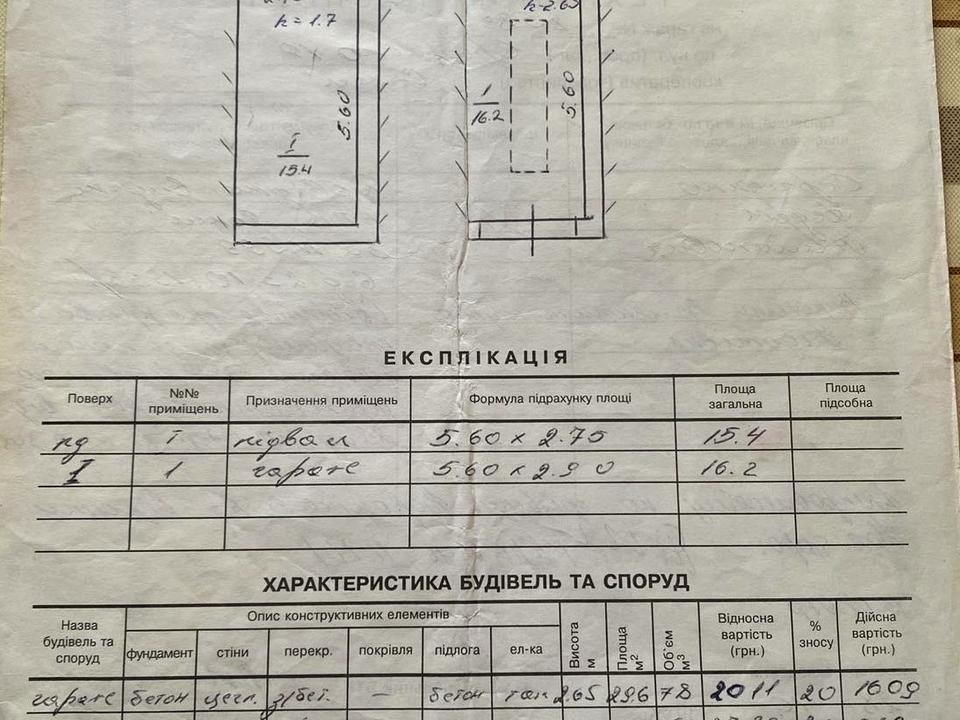 h = 1.7
h-2.65
5.60
5.60
I
15.4
1
16.2
ЕКСПЛІКАЦІЯ
Поверх №№ приміщень Призначення приміщень Формула підрахунку площі Площа загальна Площа підсобна
пд I підвал 5.60 x 2.75 15.4
I 1 гараж 5.60 x 2.90 16.2
ХАРАКТЕРИСТИКА БУДІВЕЛЬ ТА СПОРУД
Назва будівель та споруд Опис конструктивних елементів Висота м Площа м2 Об'єм м3 Відносна вартість (грн.) % зносу Дійсна вартість (грн.)
фундамент стіни перекр. покрівля підлога ел-ка
гараж бетон цегл. з/бет. — бетон 2.65 29.6 78 2011 20 1609